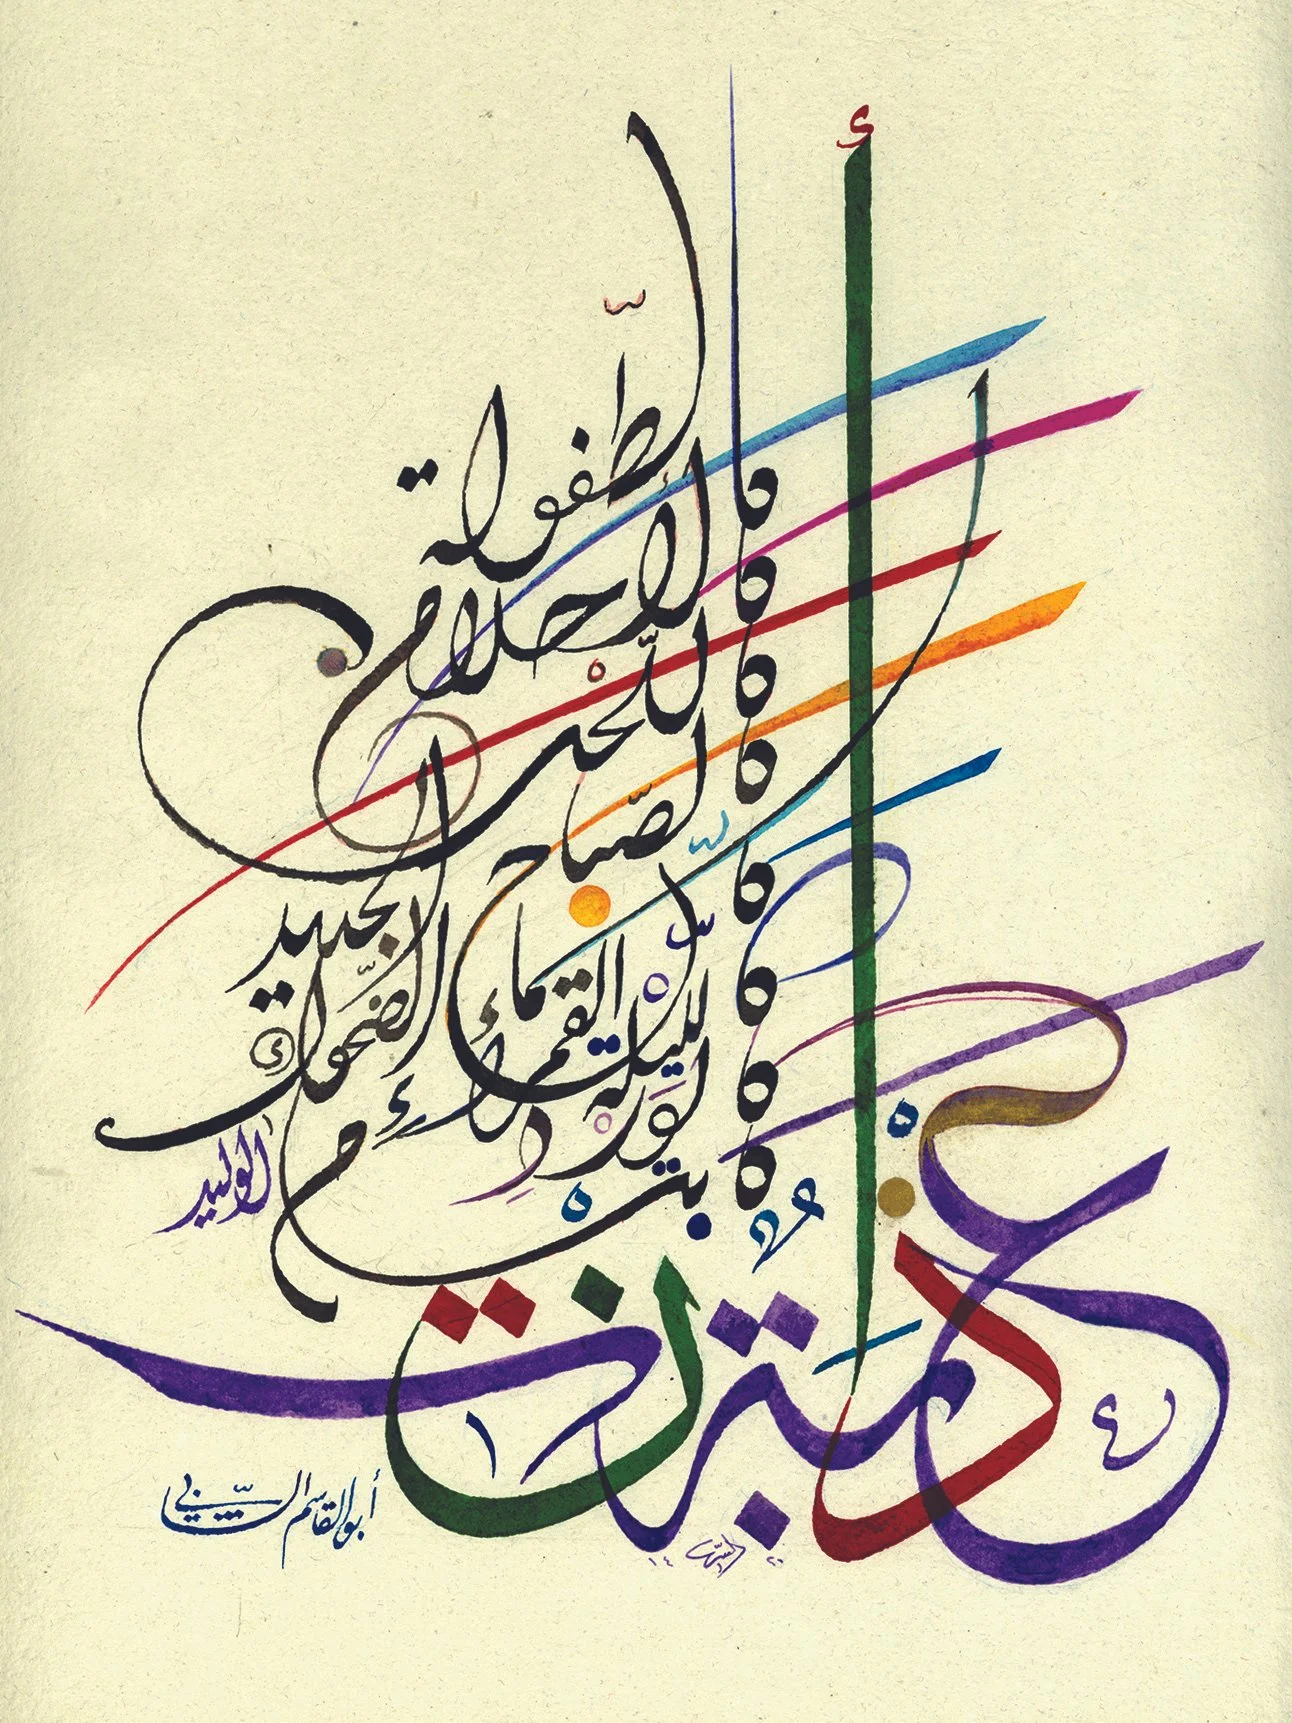 عَذْبَةٌ أنتِ
كالطّفولة
كالأحلام
كاللّحن
كالصّباح الجديد
كالسّماء الضّحوك
كاللّيلة القمراء
كالورد
كابتسام الوليد
أبو القاسم الشّابي
٢٠ ١٤